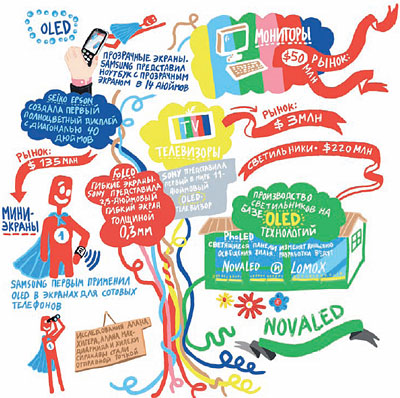 OLED
ПРОЗРАЧНЫЕ ЭКРАНЫ.
SAMSUNG ПРЕДСТАВИЛ
НОУТБУК С ПРОЗРАЧНЫМ
ЭКРАНОМ В 14 ДЮЙМОВ
МОНИТОРЫ
РЫНОК:
$50 МЛН
SEIKO EPSON
СОЗДАЛА ПЕРВЫЙ
ПОЛНОЦВЕТНЫЙ ДИСПЛЕЙ
С ДИАГОНАЛЬЮ 40
ДЮЙМОВ
РЫНОК:
$ 135 МЛН
TV
ТЕЛЕВИЗОРЫ
SONY ПРЕДСТАВИЛА
ПЕРВЫЙ В МИРЕ 11-
ДЮЙМОВЫЙ
OLED-
ТЕЛЕВИЗОР
РЫНОК:
$ 3 МЛН
СВЕТИЛЬНИКИ - $220 МЛН
ГИБКИЕ ЭКРАНЫ.
SONY ПРЕДСТАВИЛА
2,5-ДЮЙМОВЫЙ
ГИБКИЙ ЭКРАН
ТОЛЩИНОЙ
0,3 ММ
МИНИ-
ЭКРАНЫ
1
SAMSUNG ПЕРВЫМ ПРИМЕНИЛ
OLED В ЭКРАНАХ ДЛЯ СОТОВЫХ
ТЕЛЕФОНОВ
ПРОИЗВОДСТВО
СВЕТИЛЬНИКОВ НА
БАЗЕ OLED
ТЕХНОЛОГИЙ
PHOLED
СВЕТЯЩИЕСЯ ПАНЕЛИ ИЗМЕНЯТ
ОСВЕЩЕНИЯ РАЗРАБОТКИ ВЕДУТ
NOVALED И LOMOX
NOVALED
1
ИССЛЕДОВАНИЯ АЛАНА
ХИГЕРА, АЛАНА МАК-
ДИАРМИДА И ХИДЕКИ
СИРАКАВЫ СТАЛИ
ОТПРАВНОЙ ТОЧКОЙ